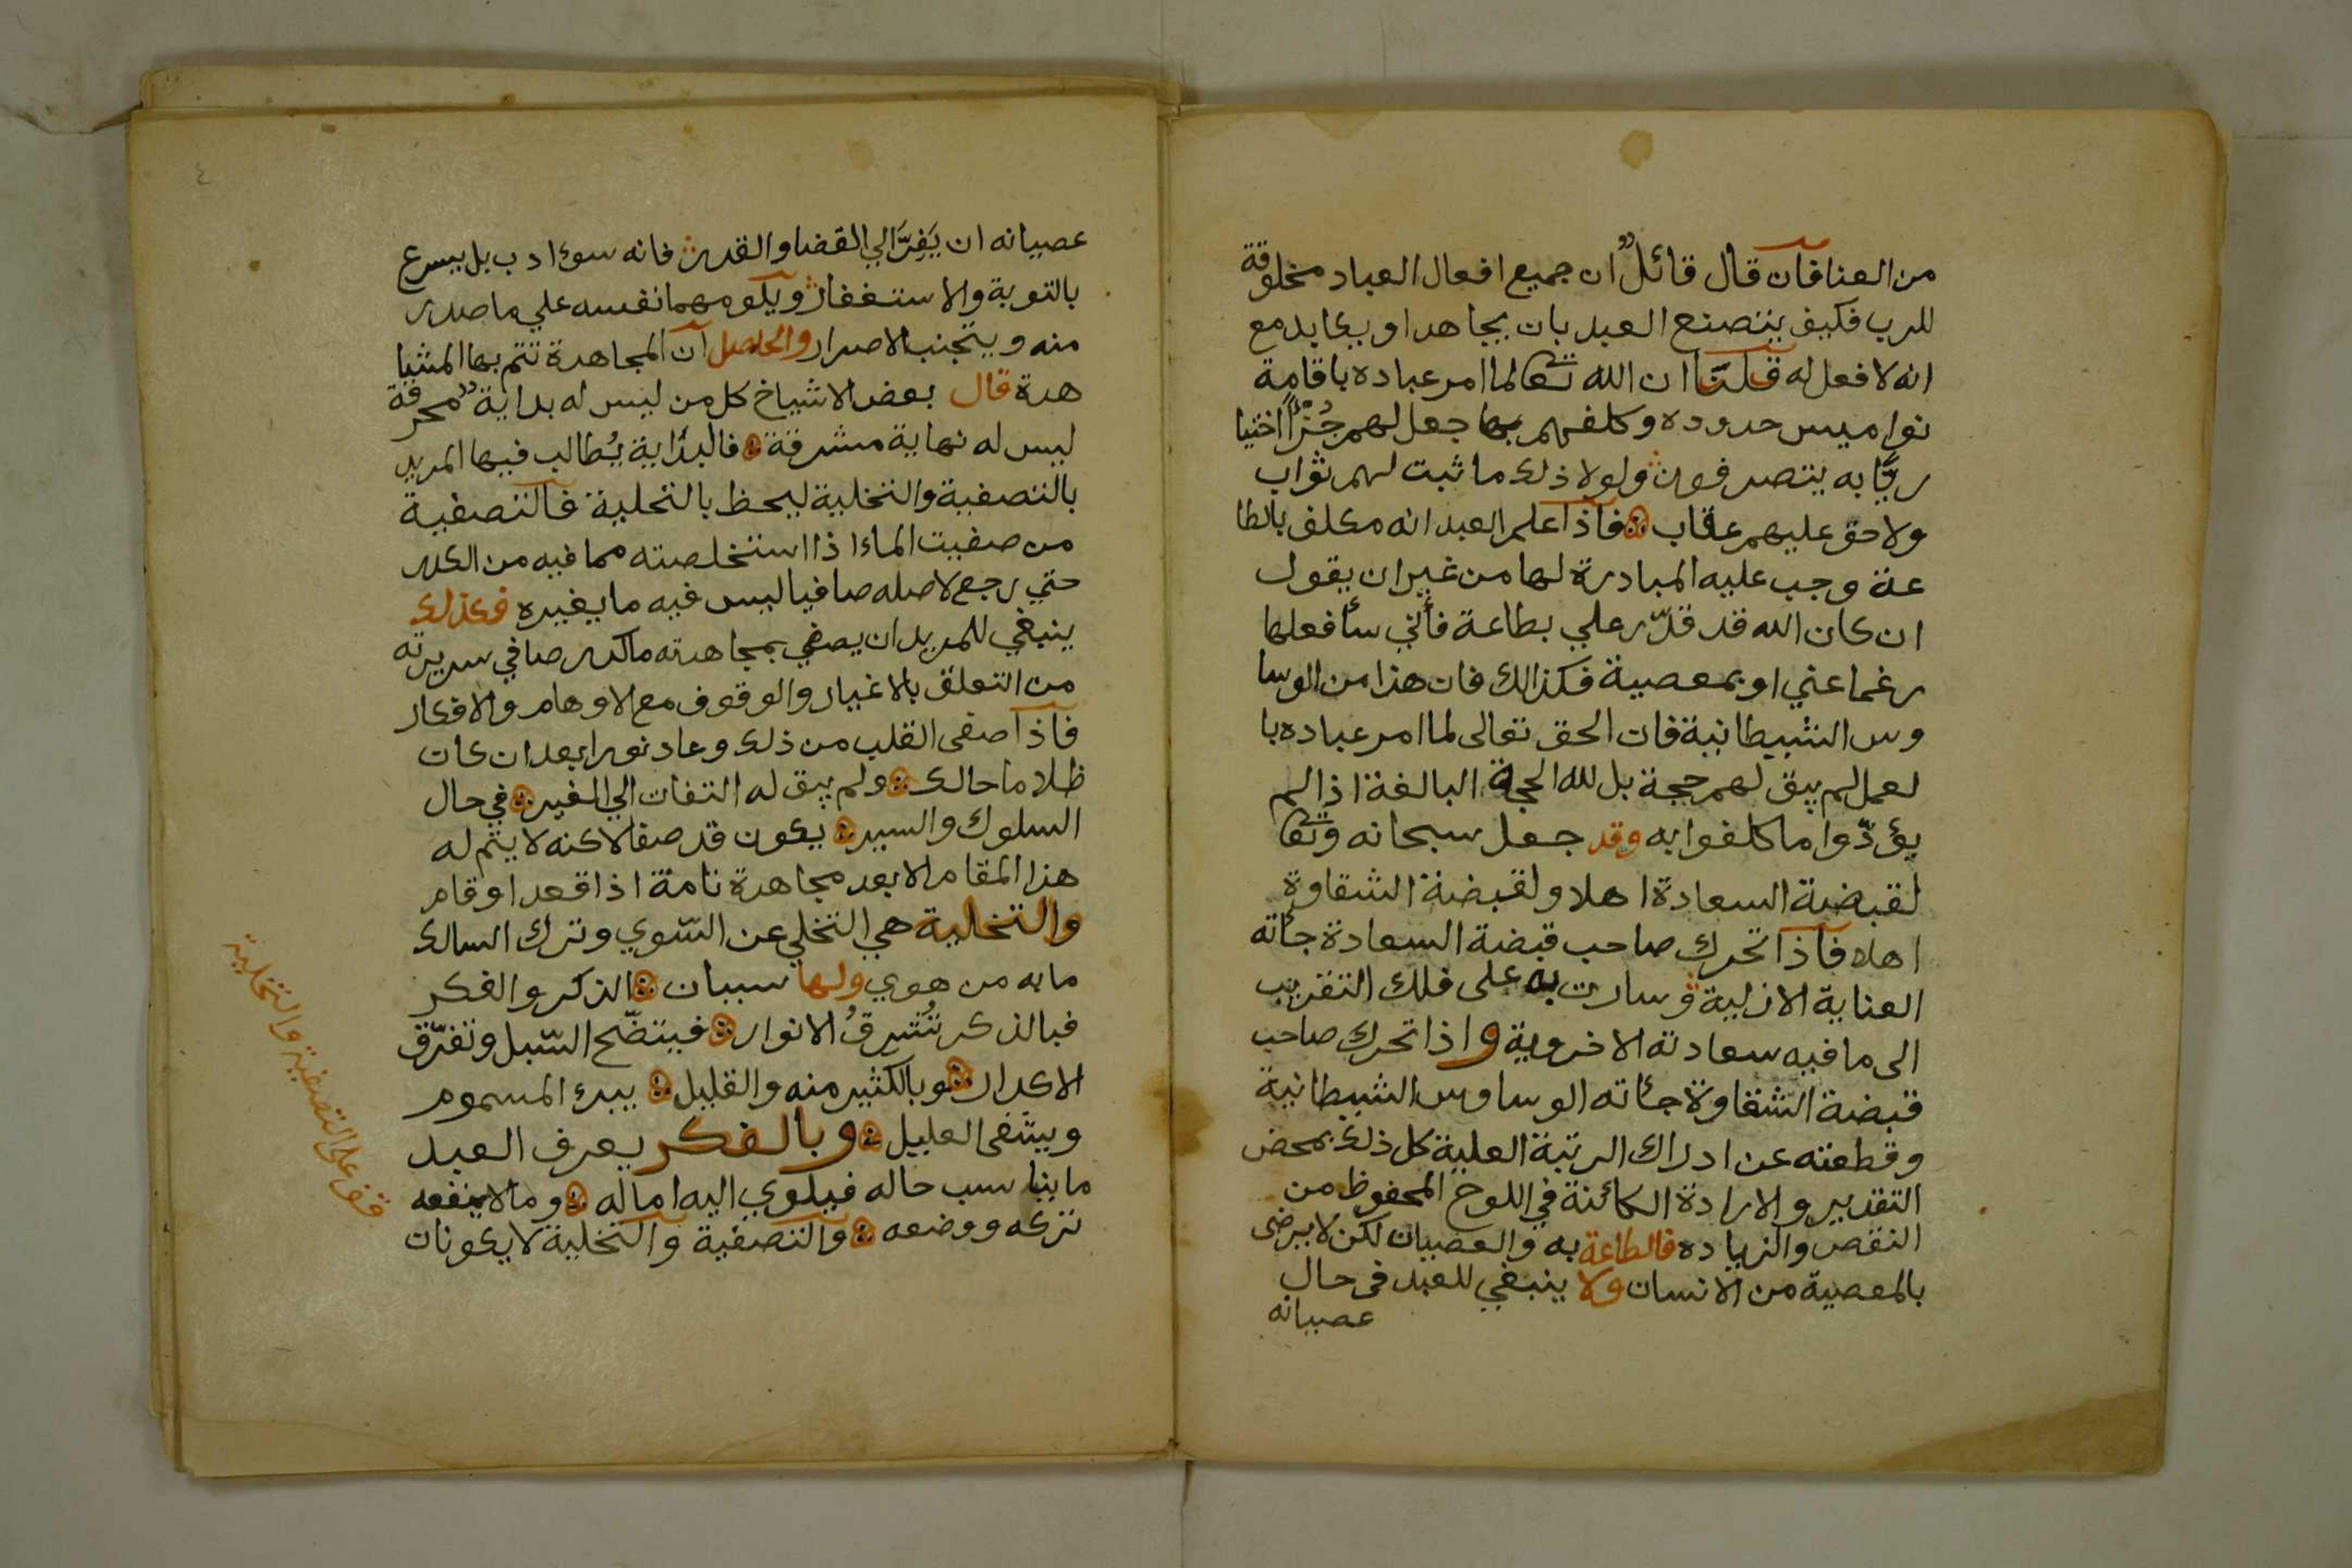 من العنا فان قال قائلٌ ان جميع افعال العباد مخلوقة
للرب فكيف يتصنع العبد بان يجاهد او يكابد مع
انه لا فعل له قلنا ان الله تعا لما امر عباده باقامة
نواميس حدوده وكلفهم بها جعل لهم جُزْأً اختيا
ريًّا به يتصرفون ولولا ذلك ما ثبت لهم ثواب
ولا حق عليهم عقاب فاذا علم العبد انه مكلف بالطا
عة وجب عليه المبادرة لها من غير ان يقول
ان كان الله قد قدّر علي بطاعة فأني سأفعلها
رغما عني او بمعصية فكذالك فان هذا من الوسا
وس الشيطانية فان الحق تعالى لما امر عباده با
لعمل لم يبق لهم حجة بل لله الحجة البالغة اذا لم
يؤدّوا ما كلفوا به وقد جعل سبحانه وتعا
لقبضة السعادة اهلا ولقبضة الشقاوة
اهلا فاذا تحرك صاحب قبضة السعادة جأته
العناية الازلية وسارت به على فلك التقريب
الى ما فيه سعادته الاخروية واذا تحرك صاحب
قبضة الشقاوة جأته الوساوس الشيطانية
وقطعته عن ادراك الرتبة العلية كل ذلك بمحض
التقدير والارادة الكائنة في اللوح المحفوظ من
النقص والزياده فالطاعة به والعصيان لكن لا يرضى
بالمعصية من الانسان ولا ينبغي للعبد في حال
عصيانه
٤
عصيانه ان يَفِرَّ الي القضا والقدر فانه سوء ادب بل يسرع
بالتوبة والاستغفار ويلوم مهما نفسه علي ما صدر
منه ويتجنب الاصرار والحاصل ان المجاهدة تتم بها المشا
هدة قال بعض الاشياخ كل من ليس له بداية محرقة
ليس له نهاية مشرقة فالبداية يُطالب فيها المريد
بالتصفية والتخلية ليحظ بالتحلية فالتصفية
من صفيت الماء اذا استخلصته مما فيه من الكدر
حتي رجع لاصله صافيا ليس فيه ما يغيره فكذلك
ينبغي للمريد ان يصفي بمجاهدته ماكدر صافي سريرته
من التعلق بالاغيار والوقوف مع الاوهام والافكار
فاذا صفى القلب من ذلك وعاد نورا بعد ان كان
ظلاما حالك ولم يبق له التفات الي الغير في حال
السلوك والسير يكون قد صفا لاكنه لا يتم له
هذا المقام الا بعد مجاهدة تامة اذا قعد او قام
والتخلية هي التخلي عن السّوي وترك السالك
ما به من هوي ولها سببان الذكر والفكر
فبالذكر تُشرقُ الانوار فيتضّح السّبل وتفرّق
الاكدار وبالكثير منه والقليل يبرء المسموم
ويشفى العليل وبالفكر يعرف العبد
ما يناسب حاله فيلوي اليه اماله وما لا ينفعه
تركه ووضعه والتصفية والتخلية لا يكونان
قف على التصفية والتخلية